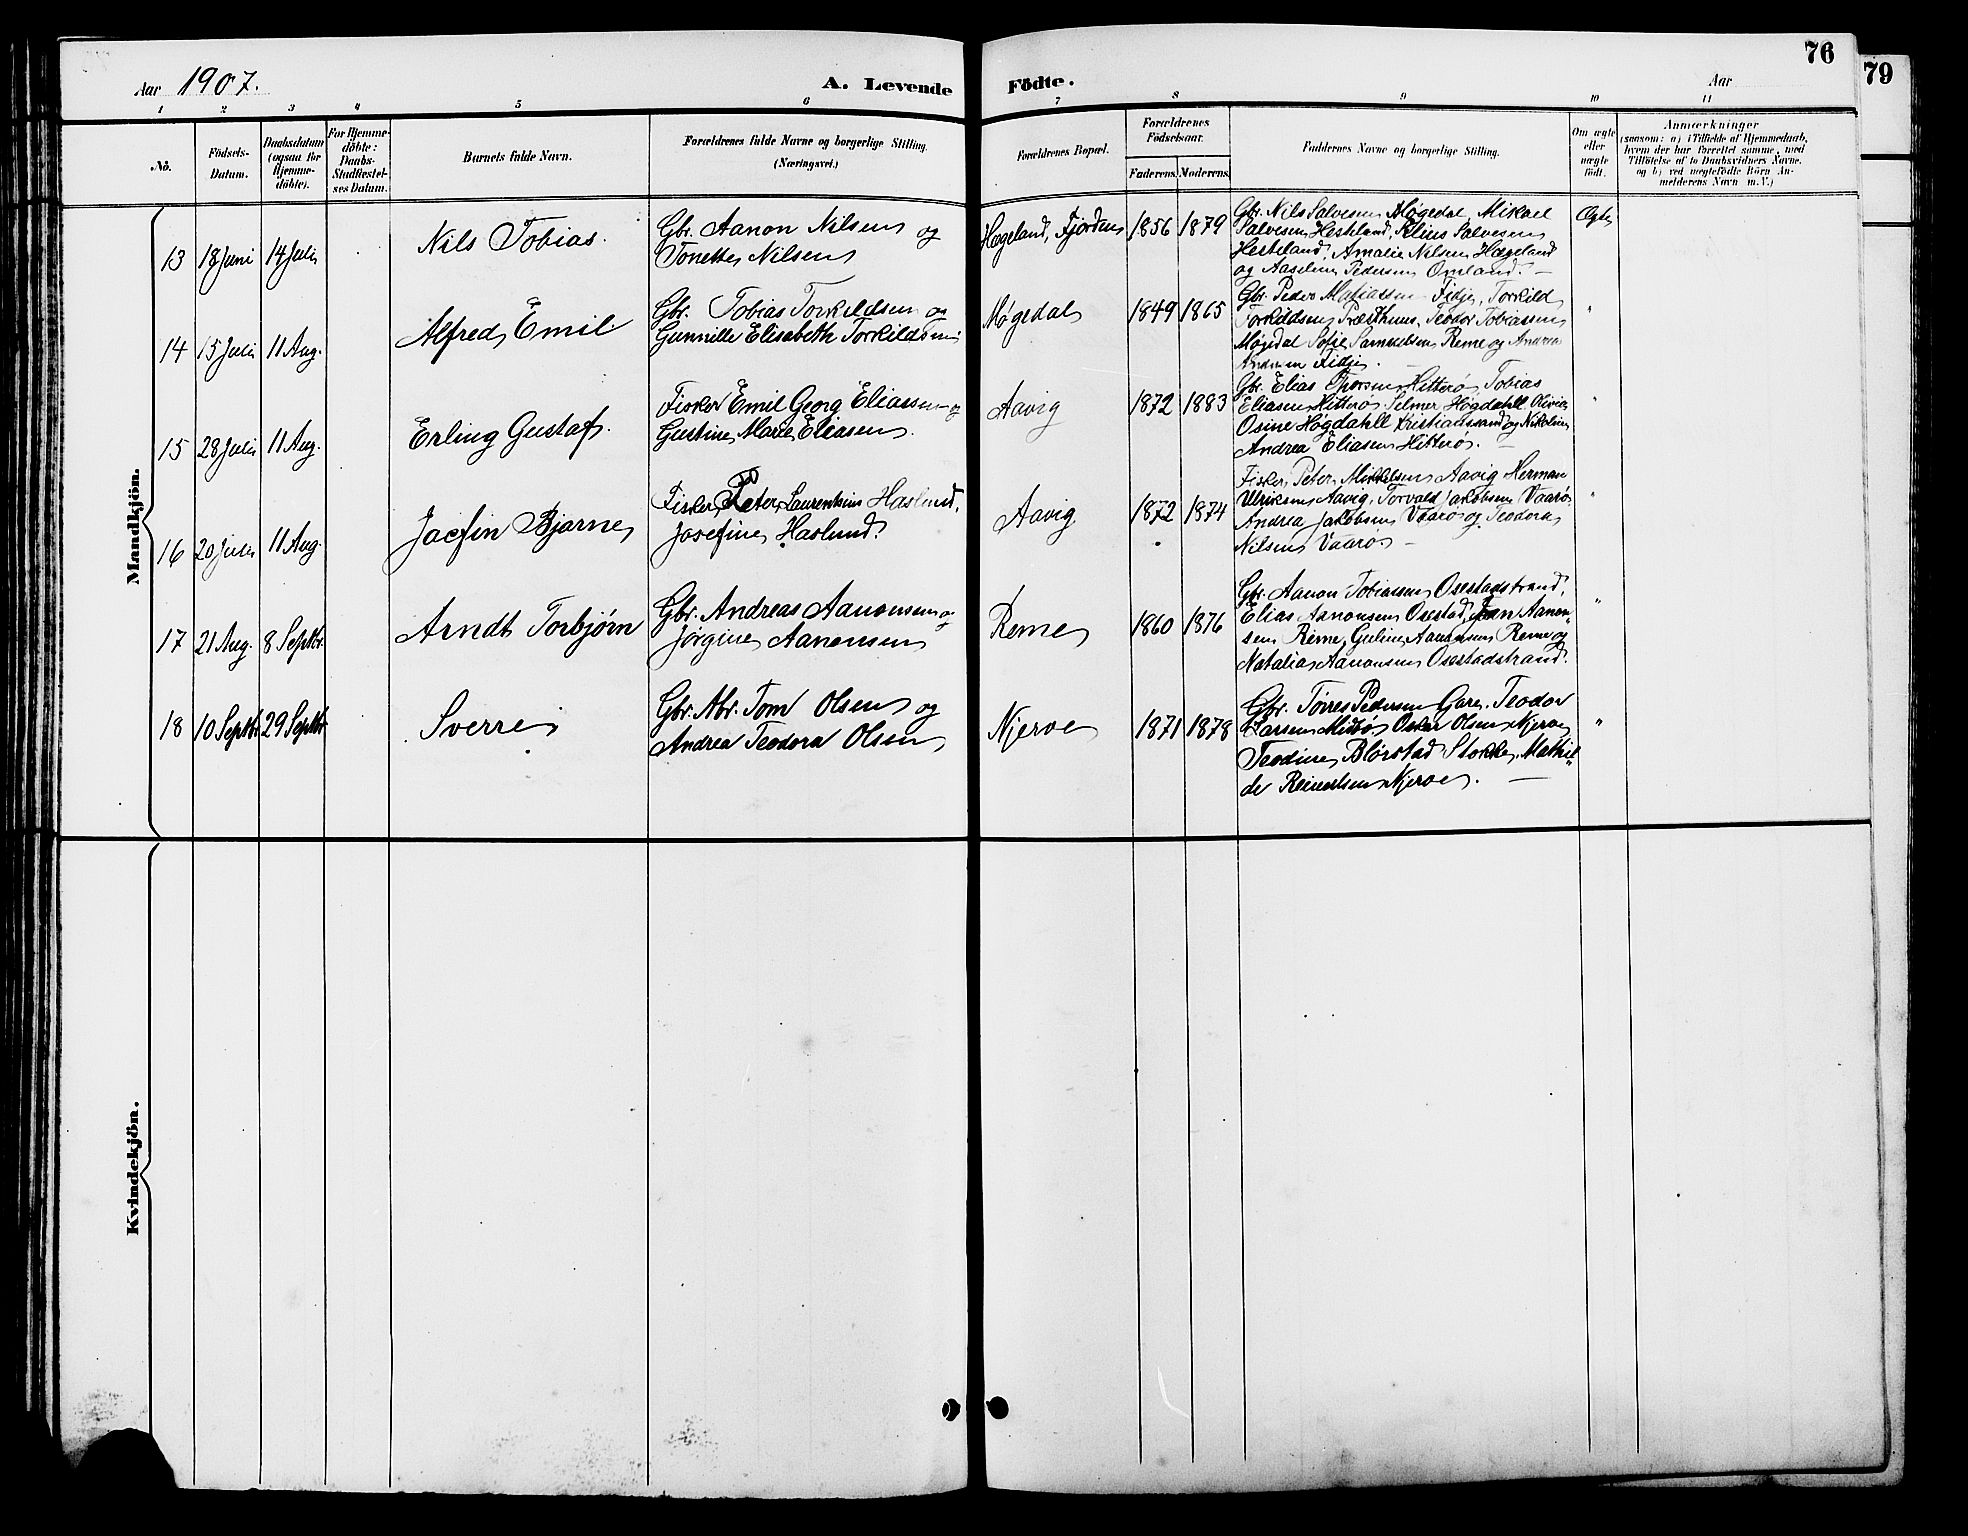 76
79
Aar 1907.
A. Levende
Födte.
Aar
1 2 3 4 5 6 7 8 9 10 11
No.
Födsels-
Datum.
Daabsdatum
(ogsaa for
Hjemme-
döbte).
For Hjemme-
döbte:
Daabs-
Stadfæstel-
ses Datum.
Barnets fulde Navn.
Forældrenes fulde Navne og borgerlige Stilling.
(Næringsvei.)
Forældrenes Bopæl.
Forældrenes
Födselsaar.
Faderens.
Moderens.
Faddernes Navne og borgerlige Stilling.
Om ægte
eller
uægte
födt.
Anmærkninger
(saasom: a) i Tilfælde af Hjemmedaab,
hvem der har forrettet samme, med
Tilföielse af to Daabsvidners Navne.
og b) ved uægtefödte Börn An-
melderens Navn m. V.)
Mandkjön.
13 18 Juni 14 Juli
Nils Tobias.
Gbr. Aanon Nilsen og
Tonette Nilsen
Hægeland, Fjorden
1856 1879
Gbr. Nils Salvesen Møgedal, Mikael
Salvesen Hesteland, Salvesen
Hesteland, Amalie Nilsen Hægeland
og Aaselene Pedersen Omland. —
Ægte
14 15 Juli 11 Aug.
Alfred Emil
Gbr. Tobias Torkildsen og
Gunnille Elisabeth Torkildsen
Møgedal
1849 1865
Gbr. Peder Matiassen Fidje, Torkild
Torkildsen Præsthus, Teodor Tobiassen
Møgedal Sofie Samuelsen Reme og Andrea
Andersen Fidje. —
"
15 28 Juli 11 Aug.
Erling Gustaf.
Fisker Emil Georg Eliassen og
Gustine Marie Eliasen.
Aavig
1872 1883
Gbr. Elias Thorsen Hitterø, Tobias
Eliasen Hitterø, Selmer Høgdahll. Olivia
Osine Høgdahll Kristianssand og Nikoline
Andrea Eliasen Hitterø. —
"
16 20 Juli 11 Aug.
Jacfin Bjarne
Fisker Peter Laurentius Haslund,
Josefine Haslund.
Aavig
1872 1874
Fisker Peter Mikkelsen Aavig Herman
Ulriksen Aavig, Torvald Jakobsen Vaarø
Andrea Jakobsen Vaarø og Teodora
Nilsen Vaarø. —
"
17 21 Aug. 8 Septbr.
Arndt Torbjørn
Gbr. Andreas Aanonsen og
Jørgine Aanensen
Reme
1860 1876
Gbr. Aanon Tobiassen Osestadstrand,
Elias Aanonsen Osestad, Aanon-
sen Reme, Guline Aanonsen Reme og
Natalia Aanonsen Osestadstrand.
"
18 10 Septbr 29 Septbr
Sverre
Gbr. Abr. Tom Olsen og
Andrea Teodora Olsen
Njerve
1871 1878
Gbr. Tørres Pedersen Gare. Teodor
Larsen Oskar Olsen Njerve
Teodine Blørstad Stokke, Mathil-
de Reinertsen Njerve. —
"
Kvindekjön.